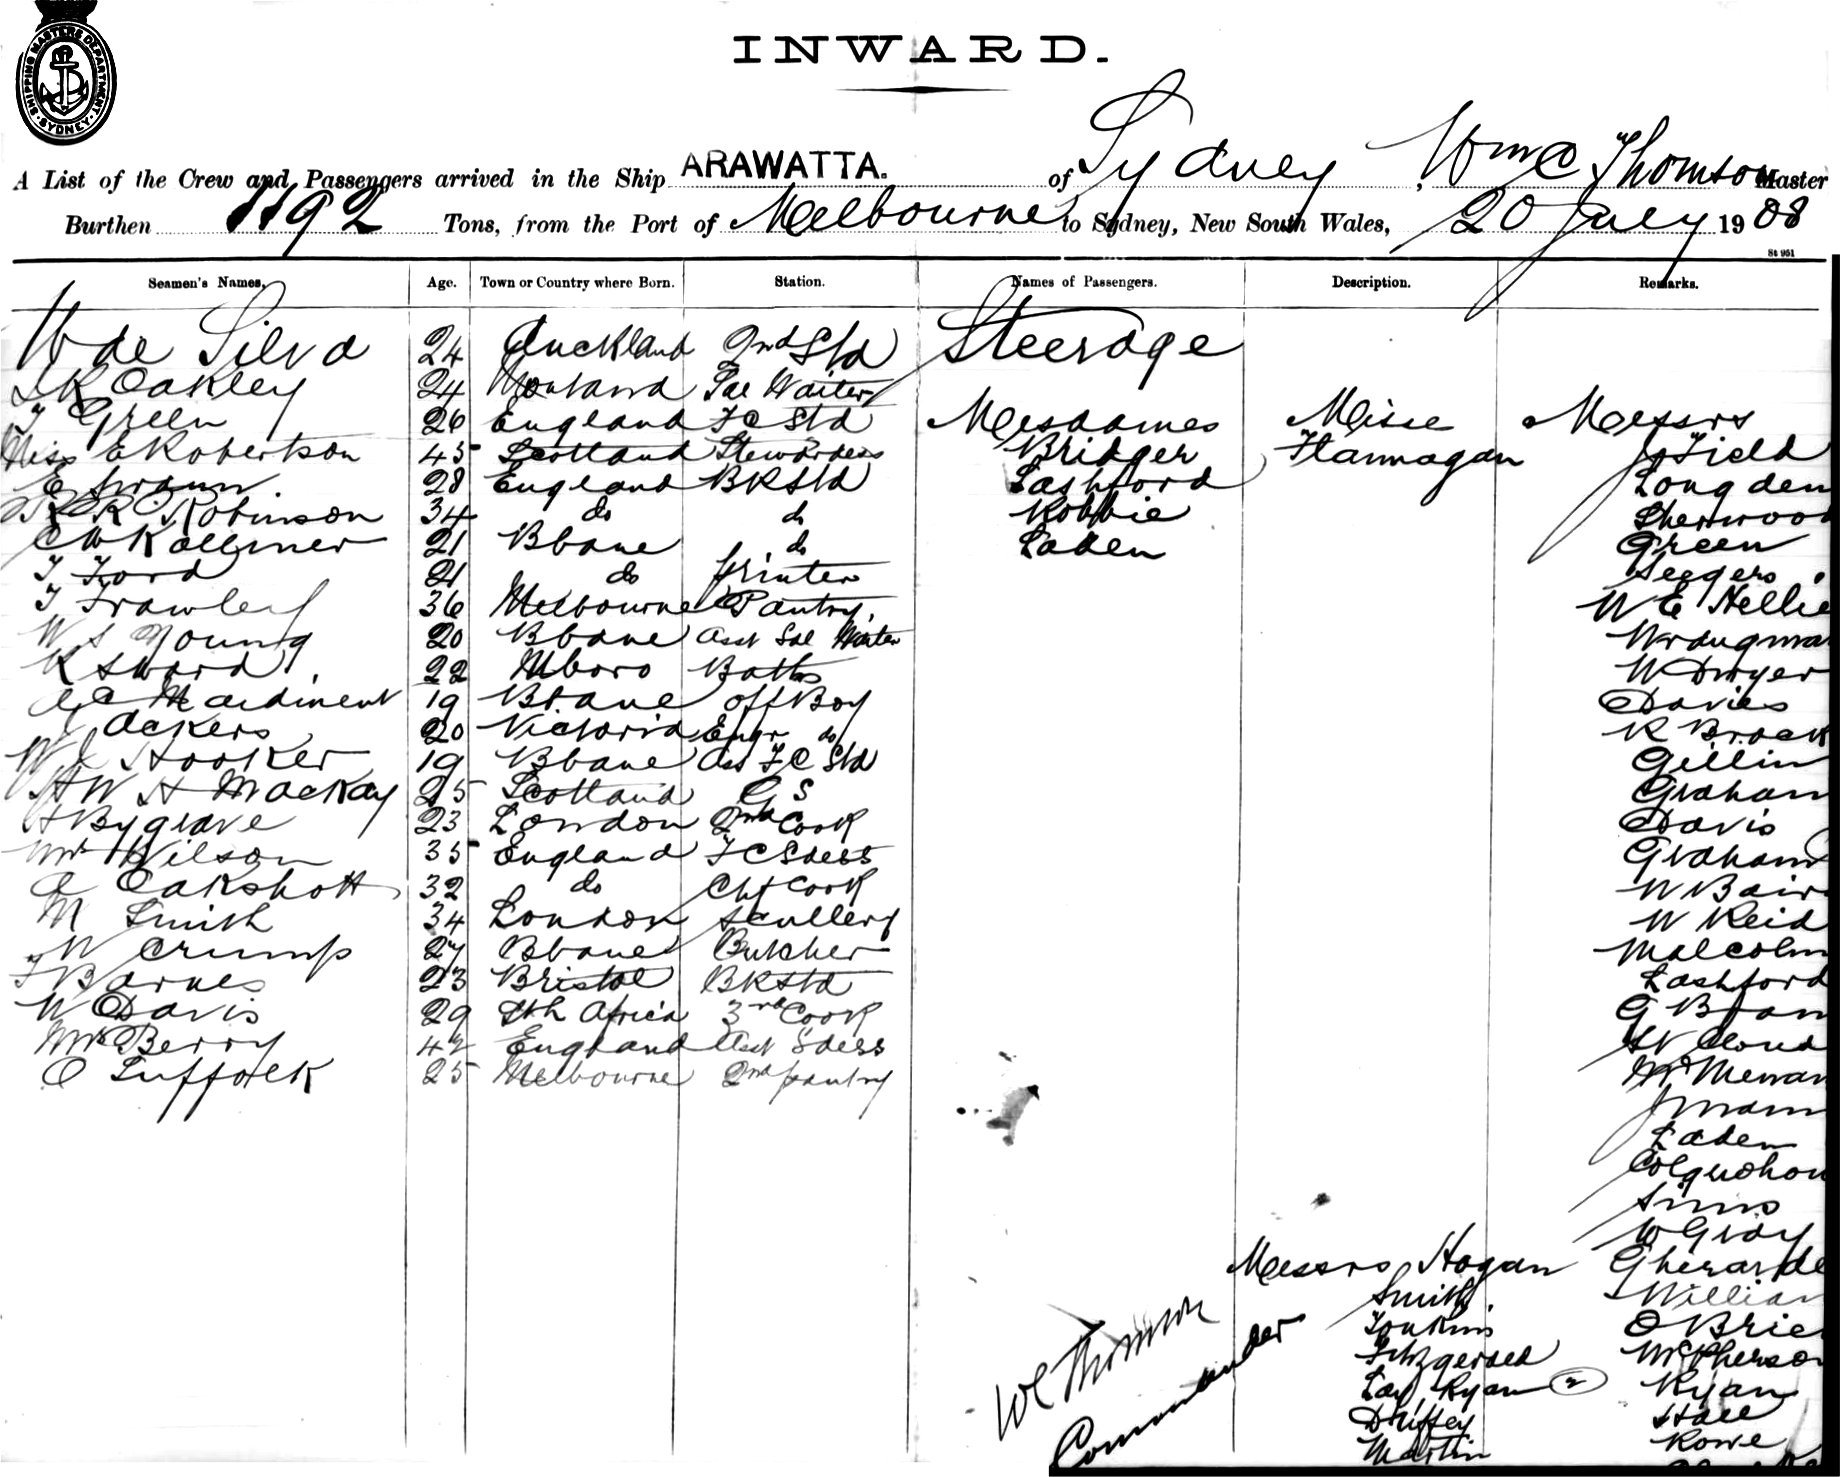 SHIPPING MASTERS DEPARTMENT · SYDNEY ·
INWARD.
A List of the Crew and Passengers arrived in the Ship ARAWATTA. of Sydney, Wm C Thomson Master
Burthen 1192 Tons, from the Port of Melbourne to Sydney, New South Wales, 20 July 1908
St 951
Seamen's Names. Age. Town or Country where Born. Station. Names of Passengers. Description. Remarks.
W de Silva 24 Auckland 2nd Std Steerage
Oakley 24 Sal Waiter
T Green 26 England F C Std Mesdames Misse Messrs
Miss E Robertson 45 Scotland Stewardess Bridger Flannagan J Field
E Swann 28 England BK Std Lashford Longden
R Robinson 34 do do Robbie Sherwood
C W Kollmer 21 Bbane do Laden Green
T Ford 21 do Printer Seegers
T Frawley 36 Melbourne Pantry. W E Hellie
W S Young 20 Bbane Asst Sal Waiter Wraugman
K Sward 22 Mboro Baths W Dwyer
Mardiment 19 Bbane Off Boy Davies
J Ackers 20 Victoria Engr do R Brock
W J Hooker 19 Bbane Ass F C Std Gillin
H W H Mackay 25 Scotland G S Graham
A Bygrave 23 London 2nd Cook Davis
Mrs Wilson 35 England F C Sdess Graham
A Oakshott 32 do Chf Cook W Bair
M Smith 34 London Scullery W Reid
W Crump 27 Bbane Butcher Malcolm
T Barnes 23 Bristol BK Std Lashford
W Davis 29 Sth Africa 3rd Cook G Bran
Mrs Berry 42 England Asst Sdess St Cloud
C Suffolk 25 Melbourne 2nd pantry
J Mann
Laden
Colquohou
Simis
W Gray
Messrs Hogan Gherarde
Smith. Willian
Jonkins O Brie
W C Thomson Fitzgerald McPherson
Commander Lay Ryan 2 Ryan
Driffey Hall
Martin Rowe